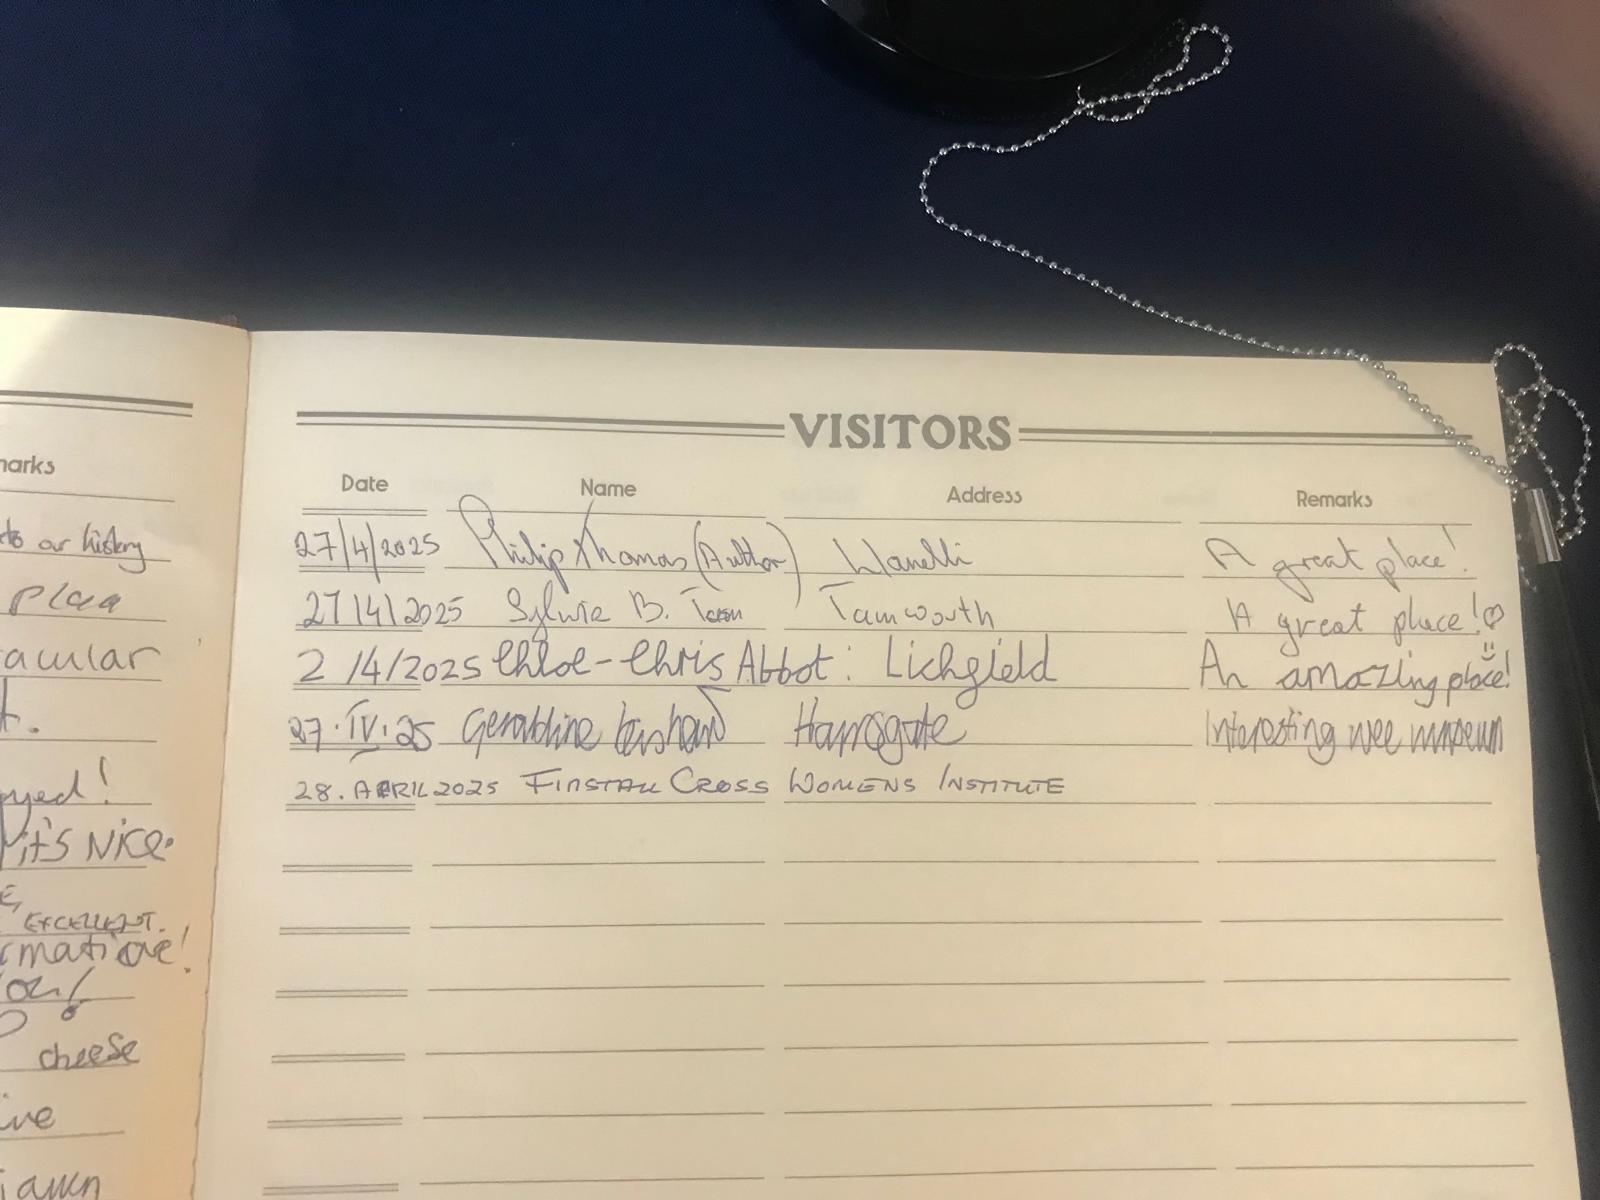 marks
to our history
place
acular
t.
oyed!
it's NICE.
E,
EXCELLENT.
rmative!
you!
cheese
ive
VISITORS
Date Name Address Remarks
27/4/2025 Philip Thomas (Author) Llanelli A great place!
27/4/2025 Sylwie B. Tamworth A great place!♡
2 /4/2025 Chloe-Chris Abbot: Lichfield An amazing place!
27.IV.25 Geraldine Harrogate Interesting wee museum
28. APRIL 2025 FINSTALL CROSS WOMENS INSTITUTE